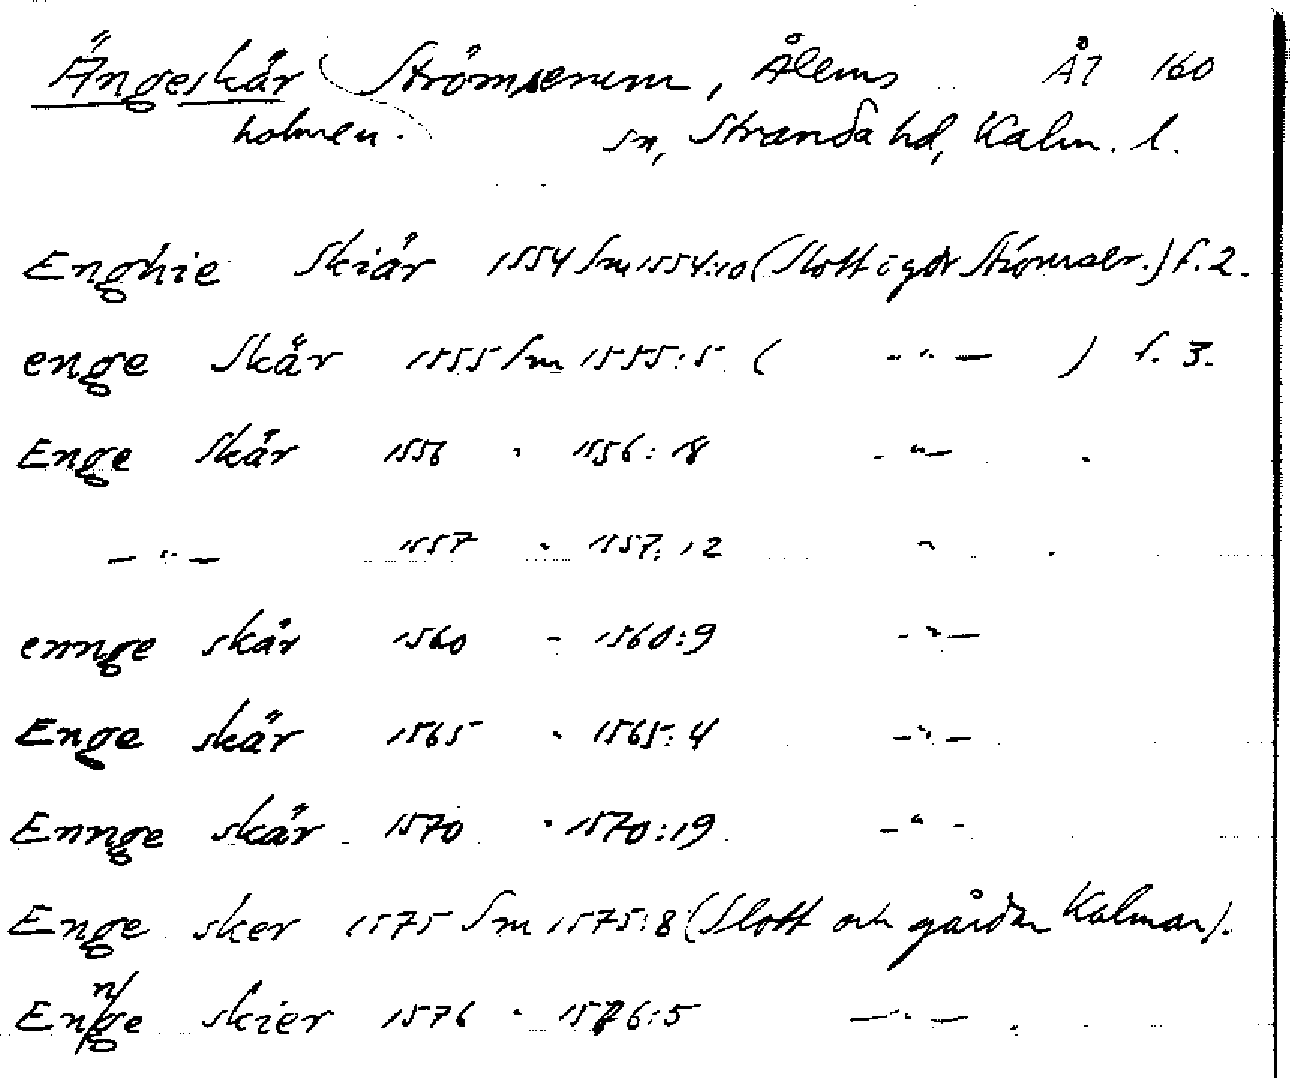 Ängeskär Strömserum, Ålems Ål 160
holmen. sn, Stranda hd, Kalm. l.
Enghie Skiär 1554 Sm 1554:10 (Slott o gdr Strömser.) f. 2.
enge Skär 1555 Sm 1555:5 ( -"- ) f. 3.
Enge Skär 1556 " 1556:18 -"-
-"- 1557 " 1557:12 "
ennge skär 1560 " 1560:9 -"-
Enge skär 1565 " 1565:4 -"-
Ennge skär 1570 " 1570:19 -"-
Enge sker 1575 Sm 1575:8 (Slott och gårdar Kalmar).
Ennge skier 1576 " 1576:5 -"-